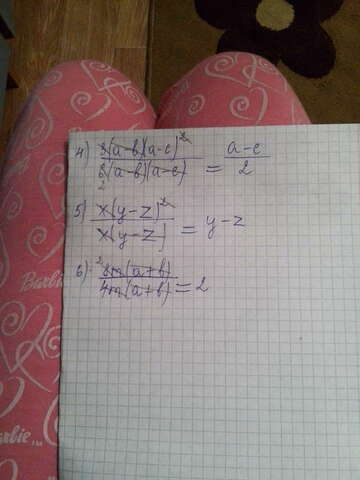 4) 3(a-b)(a-c)² / 6(a-b)(a-c) = a-c / 2
2
5) x(y-z)² / x(y-z) = y-z
6) 2 8m(a+b) / 4m(a+b) = 2
Barbie
Barbie